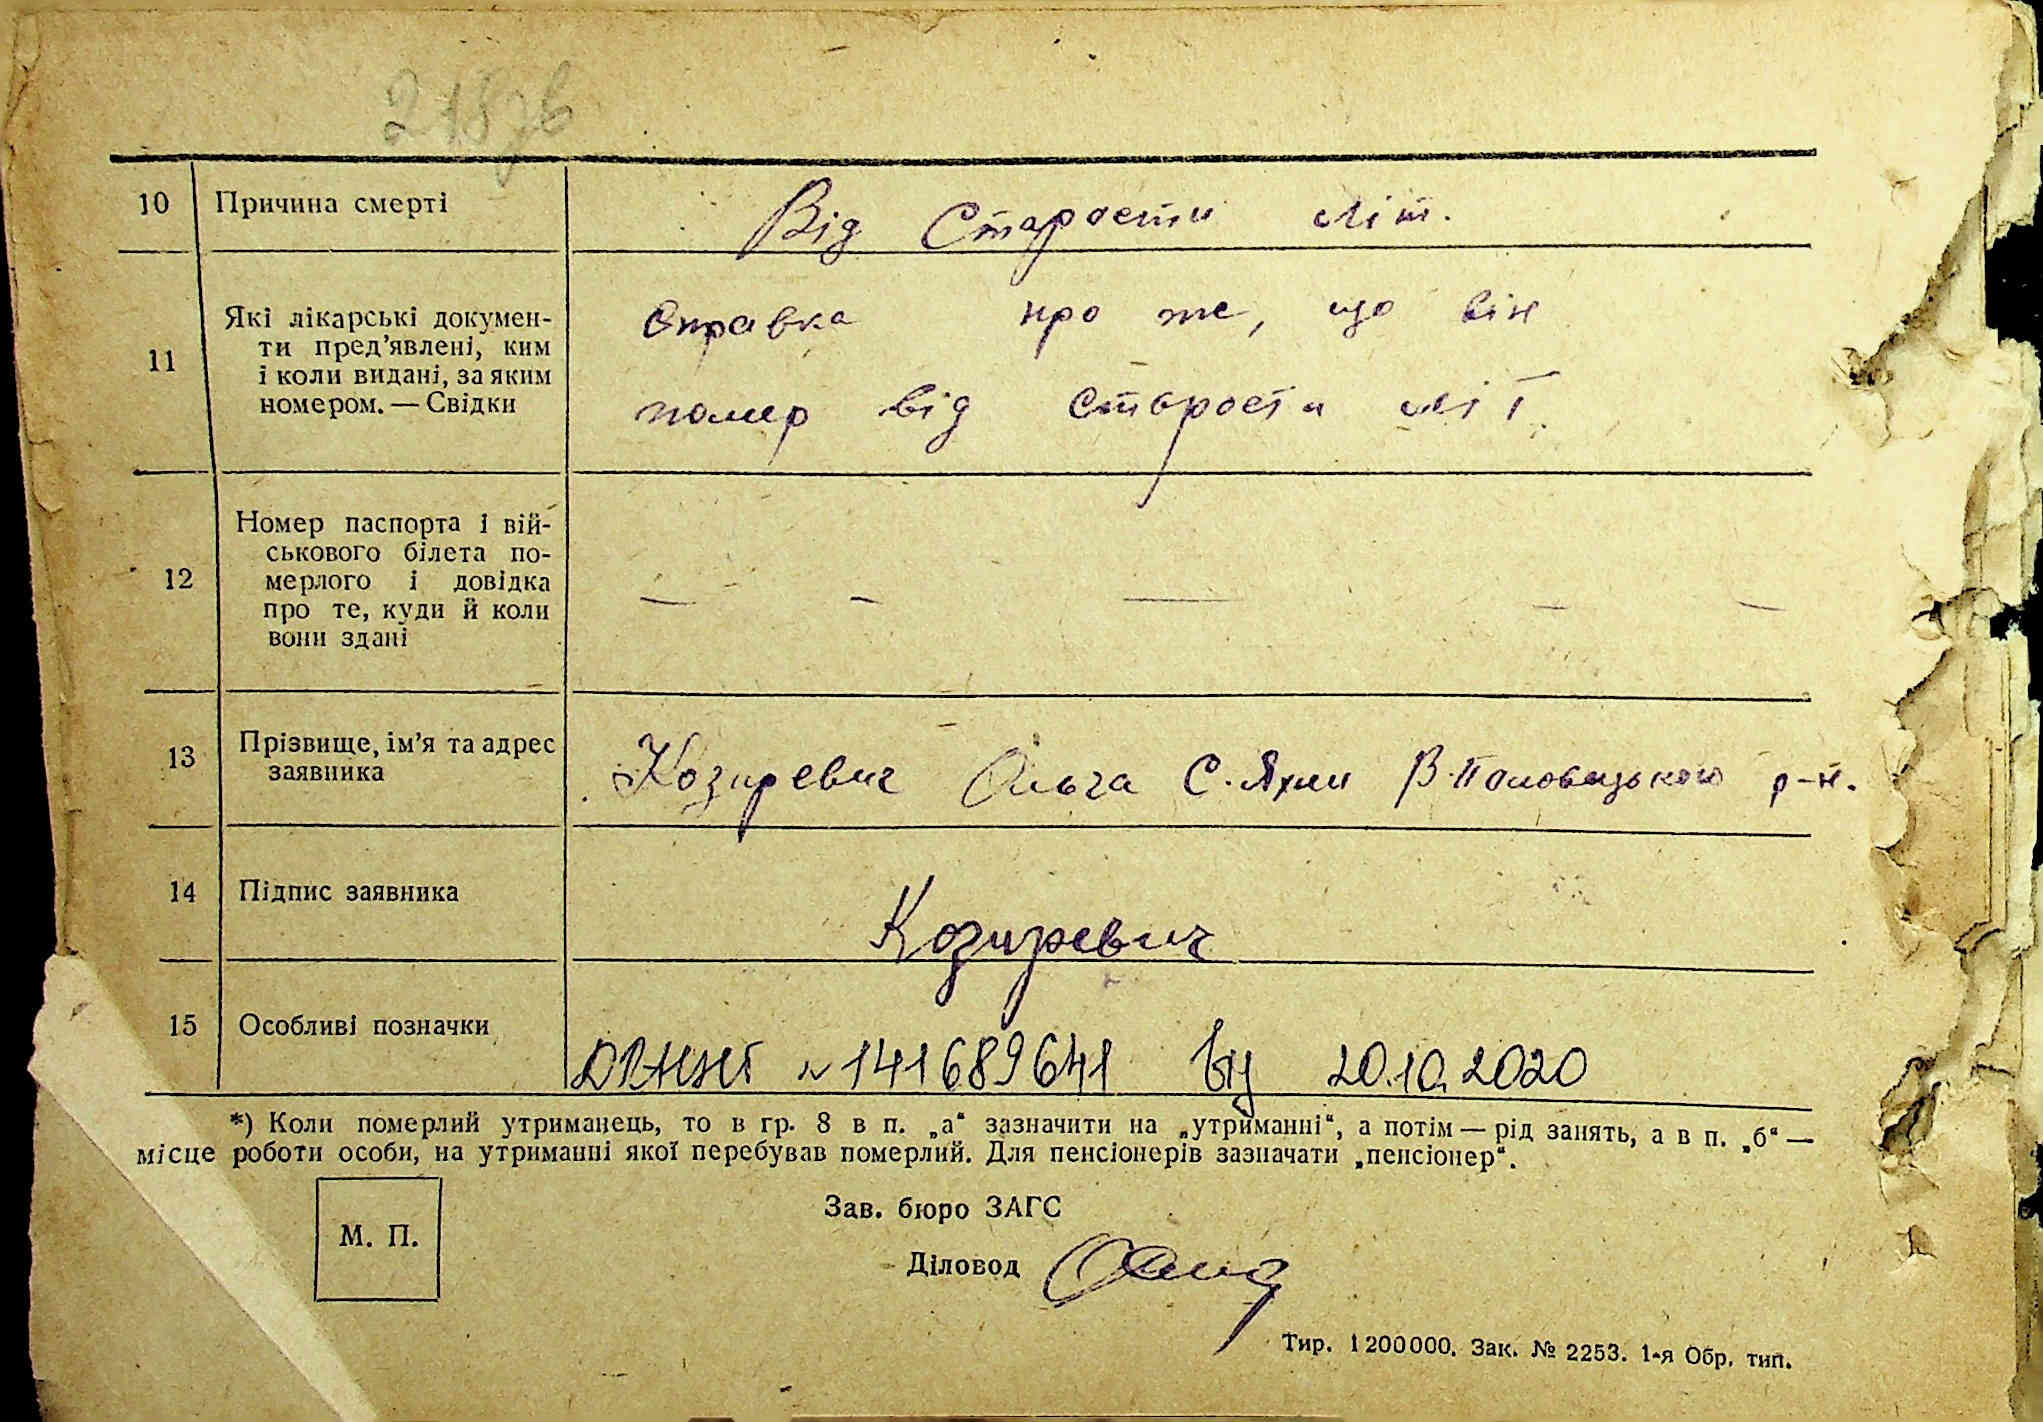 10 Причина смерті Від Старости літ.
11 Які лікарські докумен-
ти пред’явлені, ким
і коли видані, за яким
номером. — Свідки
Справка про те, що він
помер від старости літ
12 Номер паспорта і вій-
ськового білета по-
мерлого і довідка
про те, куди й коли
вони здані
— — — — —
13 Прізвище, ім’я та адрес
заявника
Козиревич Ольга С. Яхни В-Половецького р-н.
14 Підпис заявника Козиревич
15 Особливі позначки
№ 141689641 від 20.10.2020
*) Коли померлий утриманець, то в гр. 8 в п. „а“ зазначити на „утриманні“, а потім — рід занять, а в п. „б“ —
місце роботи особи, на утриманні якої перебував померлий. Для пенсіонерів зазначати „пенсіонер“.
Зав. бюро ЗАГС
М. П.
Діловод
Тир. 1200000. Зак. № 2253. 1-я Обр. тип.